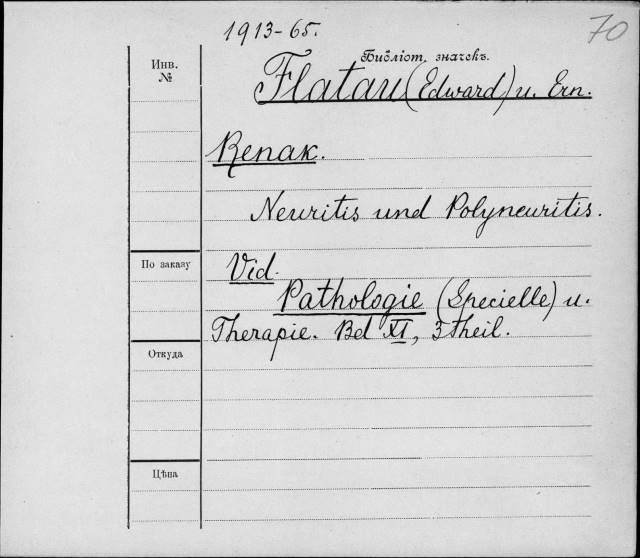 1913-65.
70
Библіот. значекъ.
Инв.
№
Flatau (Edward) u. Ern.
Remak.
Neuritis und Polyneuritis.
По заказу
Vid.
Pathologie (Specielle) u.
Therapie. Bd XI, 3 theil.
Откуда
Цѣна